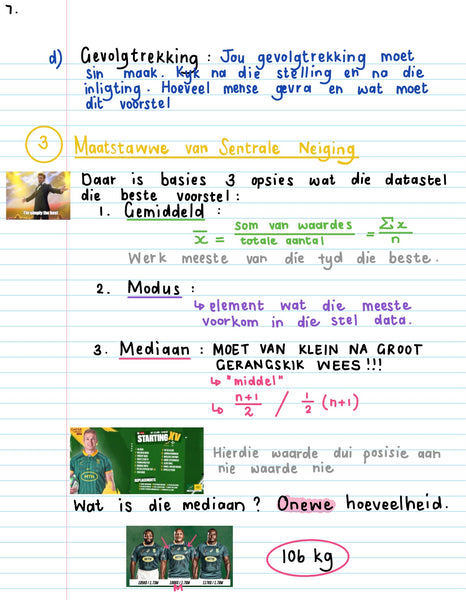 7.
d) Gevolgtrekking : Jou gevolgtrekking moet
sin maak. Kyk na die stelling en na die
inligting. Hoeveel mense gevra en wat moet
dit voorstel
3 Maatstawwe van Sentrale Neiging
Daar is basies 3 opsies wat die datastel
die beste voorstel :
I'm simply the best
1. Gemiddeld :
x̄ = som van waardes / totale aantal = Σx / n
Werk meeste van die tyd die beste.
2. Modus :
↳ element wat die meeste
voorkom in die stel data.
3. Mediaan : MOET VAN KLEIN NA GROOT
GERANGSKIK WEES !!!
↳ "middel"
↳ n+1 / 2 / 1/2 (n+1)
STARTING XV
MTN
REPLACEMENTS
Hierdie waarde dui posisie aan
nie waarde nie
Wat is die mediaan ? Onewe hoeveelheid.
106 kg
M